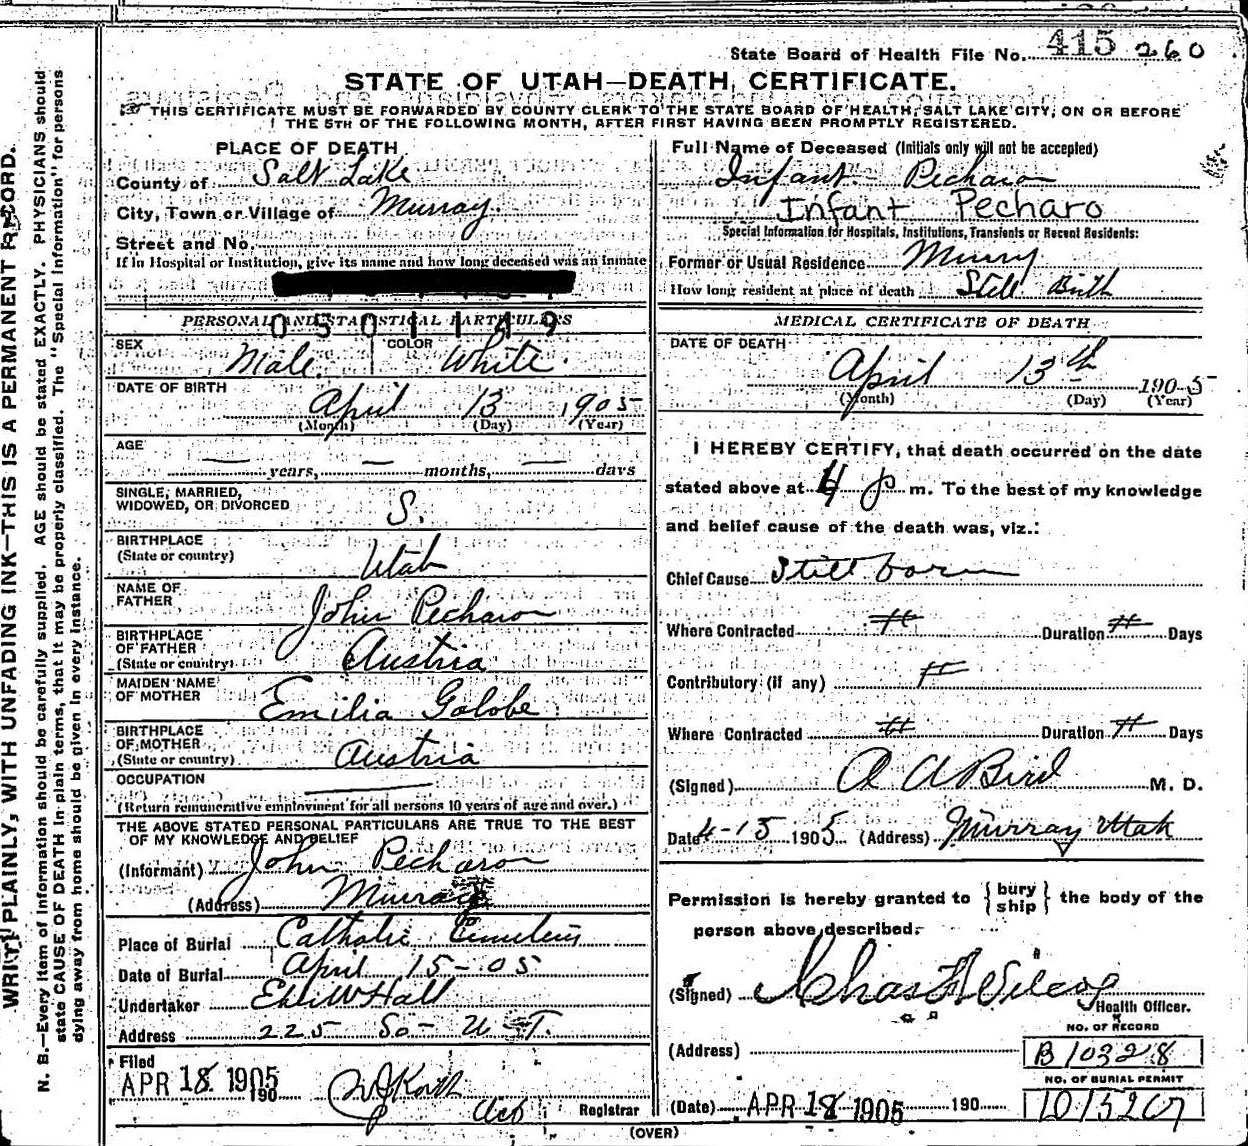 State Board of Health File No. 415 260
STATE OF UTAH—DEATH CERTIFICATE.
THIS CERTIFICATE MUST BE FORWARDED BY COUNTY CLERK TO THE STATE BOARD OF HEALTH, SALT LAKE CITY, ON OR BEFORE
THE 5TH OF THE FOLLOWING MONTH, AFTER FIRST HAVING BEEN PROMPTLY REGISTERED.
WRITE PLAINLY, WITH UNFADING INK—THIS IS A PERMANENT RECORD.
N. B.—Every item of information should be carefully supplied. AGE should be stated EXACTLY. PHYSICIANS should
state CAUSE OF DEATH in plain terms, that it may be properly classified. The "Special Information" for persons
dying away from home should be given in every instance.
PLACE OF DEATH
County of Salt Lake
City, Town or Village of Murray
Street and No.
If in Hospital or Institution, give its name and how long deceased was an inmate
PERSONAL AND STATISTICAL PARTICULARS
0501149
SEX Male COLOR White.
DATE OF BIRTH
April 13 1905
(Month) (Day) (Year)
AGE
— years, — months, — days
SINGLE, MARRIED,
WIDOWED, OR DIVORCED S.
BIRTHPLACE
(State or country) Utah
NAME OF
FATHER John Pecharo
BIRTHPLACE
OF FATHER
(State or country) Austria
MAIDEN NAME
OF MOTHER Emilia Golobe
BIRTHPLACE
OF MOTHER
(State or country) Austria
OCCUPATION
(Return remunerative employment for all persons 10 years of age and over.)
THE ABOVE STATED PERSONAL PARTICULARS ARE TRUE TO THE BEST
OF MY KNOWLEDGE AND BELIEF
(Informant) John Pecharo
(Address) Murray
Place of Burial Catholic Cemetery
Date of Burial April 15-05
Undertaker Eber W Hall
Address 225 So- W. T.
Filed
APR 18 1905 190
Registrar
Full Name of Deceased (Initials only will not be accepted)
Infant Pecharo
Infant Pecharo
Special Information for Hospitals, Institutions, Transients or Recent Residents:
Former or Usual Residence Murry
How long resident at place of death Still Birth
MEDICAL CERTIFICATE OF DEATH
DATE OF DEATH
April 13th 1905
(Month) (Day) (Year)
I HEREBY CERTIFY, that death occurred on the date
stated above at 4 p m. To the best of my knowledge
and belief cause of the death was, viz.:
Chief Cause Still born
Where Contracted Duration Days
Contributory (if any)
Where Contracted Duration Days
(Signed) A A Bird M. D.
Date 4-15 1905 (Address) Murray Utah
Permission is hereby granted to {bury ship} the body of the
person above described.
(Signed) Chas F Wilcox
Health Officer.
NO. OF RECORD
(Address) B 10328
NO. OF BURIAL PERMIT
(Date) APR 18 1905 190 1013207
(OVER)